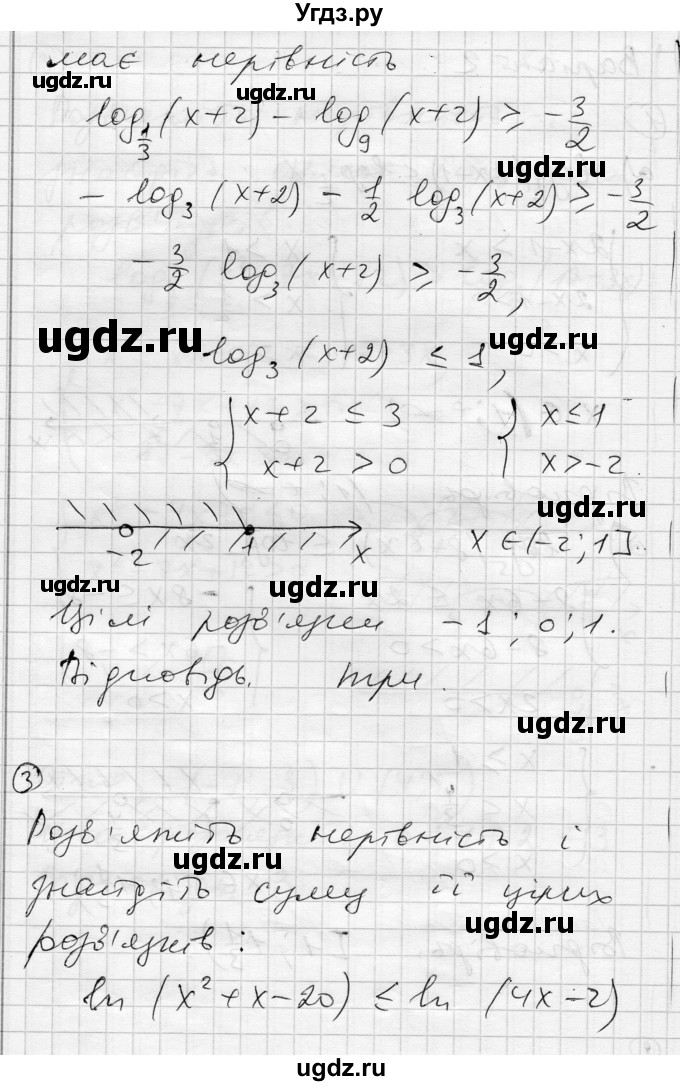 Угдз.ру
має нерівність:
ugdz.ru ugdz.ru
log_{1/3} (x+2) - log_9 (x+2) ≥ -3/2
ugdz.ru
- log_3 (x+2) - 1/2 log_3 (x+2) ≥ -3/2
- 3/2 log_3 (x+2) ≥ -3/2,
ugdz.ru ugdz.ru
log_3 (x+2) ≤ 1,
{ x+2 ≤ 3 { x ≤ 1
x+2 > 0 x > -2
-2 1 x x ∈ (-2; 1].
ugdz.ru ugdz.ru ugdz.ru
Цілі розв'язки -1; 0; 1.
Відповідь. три.
ugdz.ru
3
Розв'яжіть нерівність і
ugdz.ru
знайдіть суму її цілих
ugdz.ru
розв'язків:
ln (x² + x - 20) ≤ ln (4x - 2)
ugdz.ru